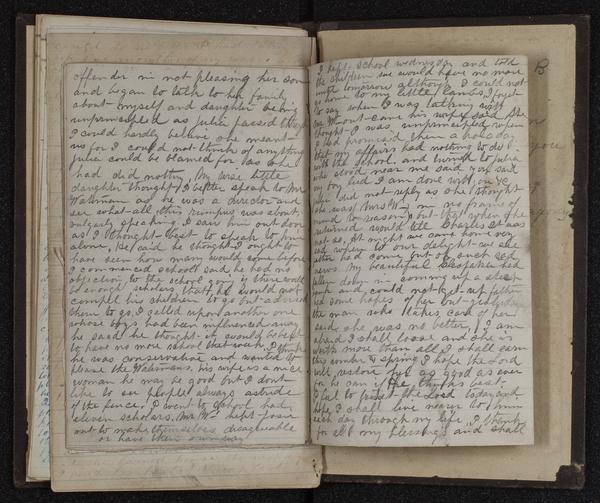 offender in not pleasing her son
and began to talk to her family
about myself and daughter being
unprincipled as Julia passed
I could hardly believe she meant
us for I could not think of anything
Julia could be blamed for as she
had did nothing, My wise little
daughter thought I better speak to Mr
Wakman as he was a director and
see what all this rumpus was about,
vulgarly speaking. I saw him out door
as I thought best to speak to him
alone, He said he thought I ought to
have seen how many would come before
I commenced school said he had no
objection to the school going if there could
be enough scholars, that he would not
compell his children to go but advised
them to go, I called upon another one
whose boys had been influenced away
he said he thought it would be best
to have no more school that week, I think
he was conservative and wanted to
please the Wakmans, his wife is a nice
woman he may be good but I dont
like to see people always astride
of the fence, I went to school had
eleven scholars, Mrs W kept
out to make themselves disagreeable
or have their own way
I kept school wednesday and told
the children we would have no more
until tomorrow although I could not
go home to my little lambs, I forgot
to say when I was talking with
Mr W out came his wife said she
thought I was unprincipled when
I had promised them a holoday
that my affairs had nothing to do
with the school, and turned to Julia
who stood near me said you said
my boy lied I am done with you
Julia did not reply as she thought
she was Mrs W in no frame of
mind to reason, but that when he
returned would tell Charles it was
not so, At night we came home very
tired when to our delight we
had come but oh such sad
news. My beautiful
fallen down in coming up a steep
and could not get up father
had some hopes of her but yesterday
the man who takes care of her
said she was no better, I am
afraid I shall loose and she is
worth more than all I shall earn
this summer & spring I hope the Lord
will restore her as good as ever
for he can if He thinks best
I fail to trust the Lord today and
hope I shall live nearer to him
each day through my life, I thank
for all my blessings and shall
B
you